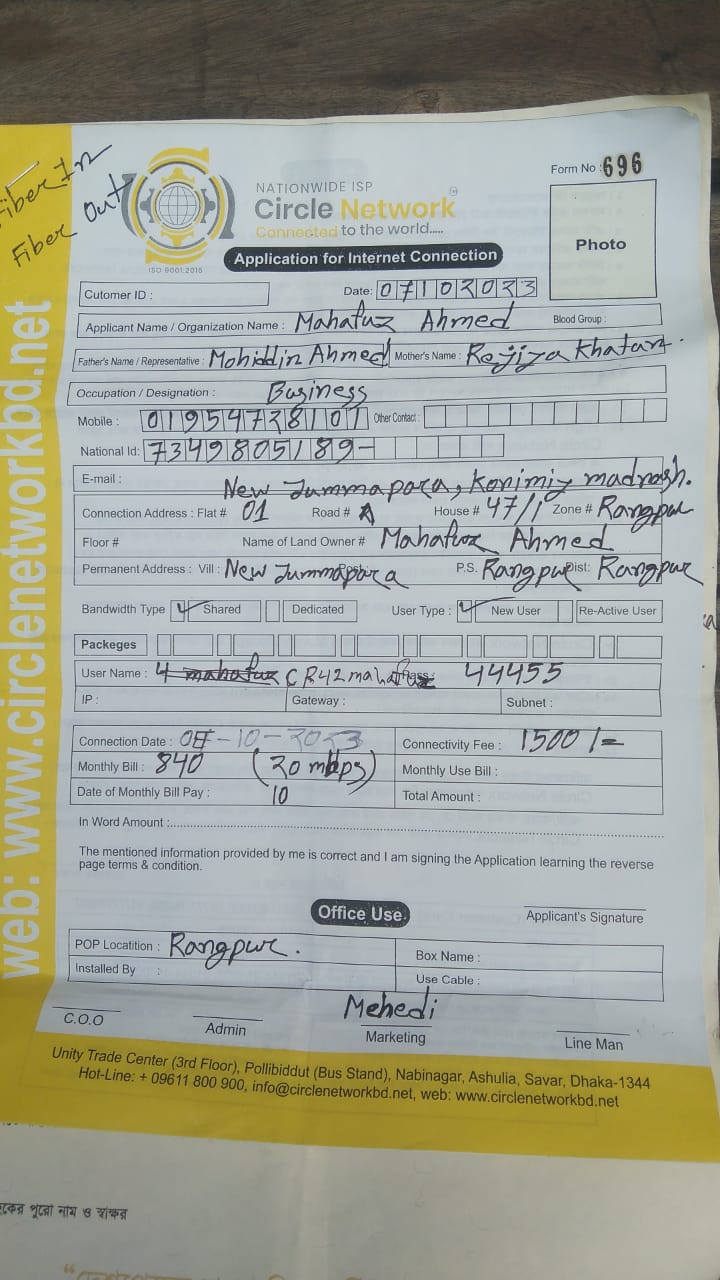 Fiber In
Fiber Out
NATIONWIDE ISP
Circle Network
Connected to the world.....
ISO 9001:2015
Form No : 696
Photo
Application for Internet Connection
Cutomer ID :
Date: 07102023
Applicant Name / Organization Name : Mahafuz Ahmed Blood Group :
Father's Name / Representative : Mohiddin Ahmed Mother's Name : Rejiya Khatun.
Occupation / Designation : Business
Mobile : 01954728101 Other Contact :
National Id: 7349805189-
E-mail :
New Jummapara, Korimiy madrash.
Connection Address : Flat # 01 Road # A House # 47/1 Zone # Rangpur
Floor # Name of Land Owner # Mahafuz Ahmed
Permanent Address : Vill : New Jummapara P.S. Rangpur Dist: Rangpur
Bandwidth Type Shared Dedicated User Type : New User Re-Active User
Packeges
User Name : 4 mahafuz CR42mahafuz Pass: 44455
IP : Gateway : Subnet :
Connection Date : -10-2023 Connectivity Fee : 1500/=
Monthly Bill : 840 (20 mbps) Monthly Use Bill :
Date of Monthly Bill Pay : 10 Total Amount :
In Word Amount :
The mentioned information provided by me is correct and I am signing the Application learning the reverse
page terms & condition.
Office Use
Applicant's Signature
POP Locatition : Rangpur. Box Name :
Installed By : Use Cable :
Mehedi
C.O.O Admin Marketing Line Man
Unity Trade Center (3rd Floor), Pollibiddut (Bus Stand), Nabinagar, Ashulia, Savar, Dhaka-1344
Hot-Line: + 09611 800 900, info@circlenetworkbd.net, web: www.circlenetworkbd.net
web: www.circlenetworkbd.net
পুরো নাম ও স্বাক্ষর